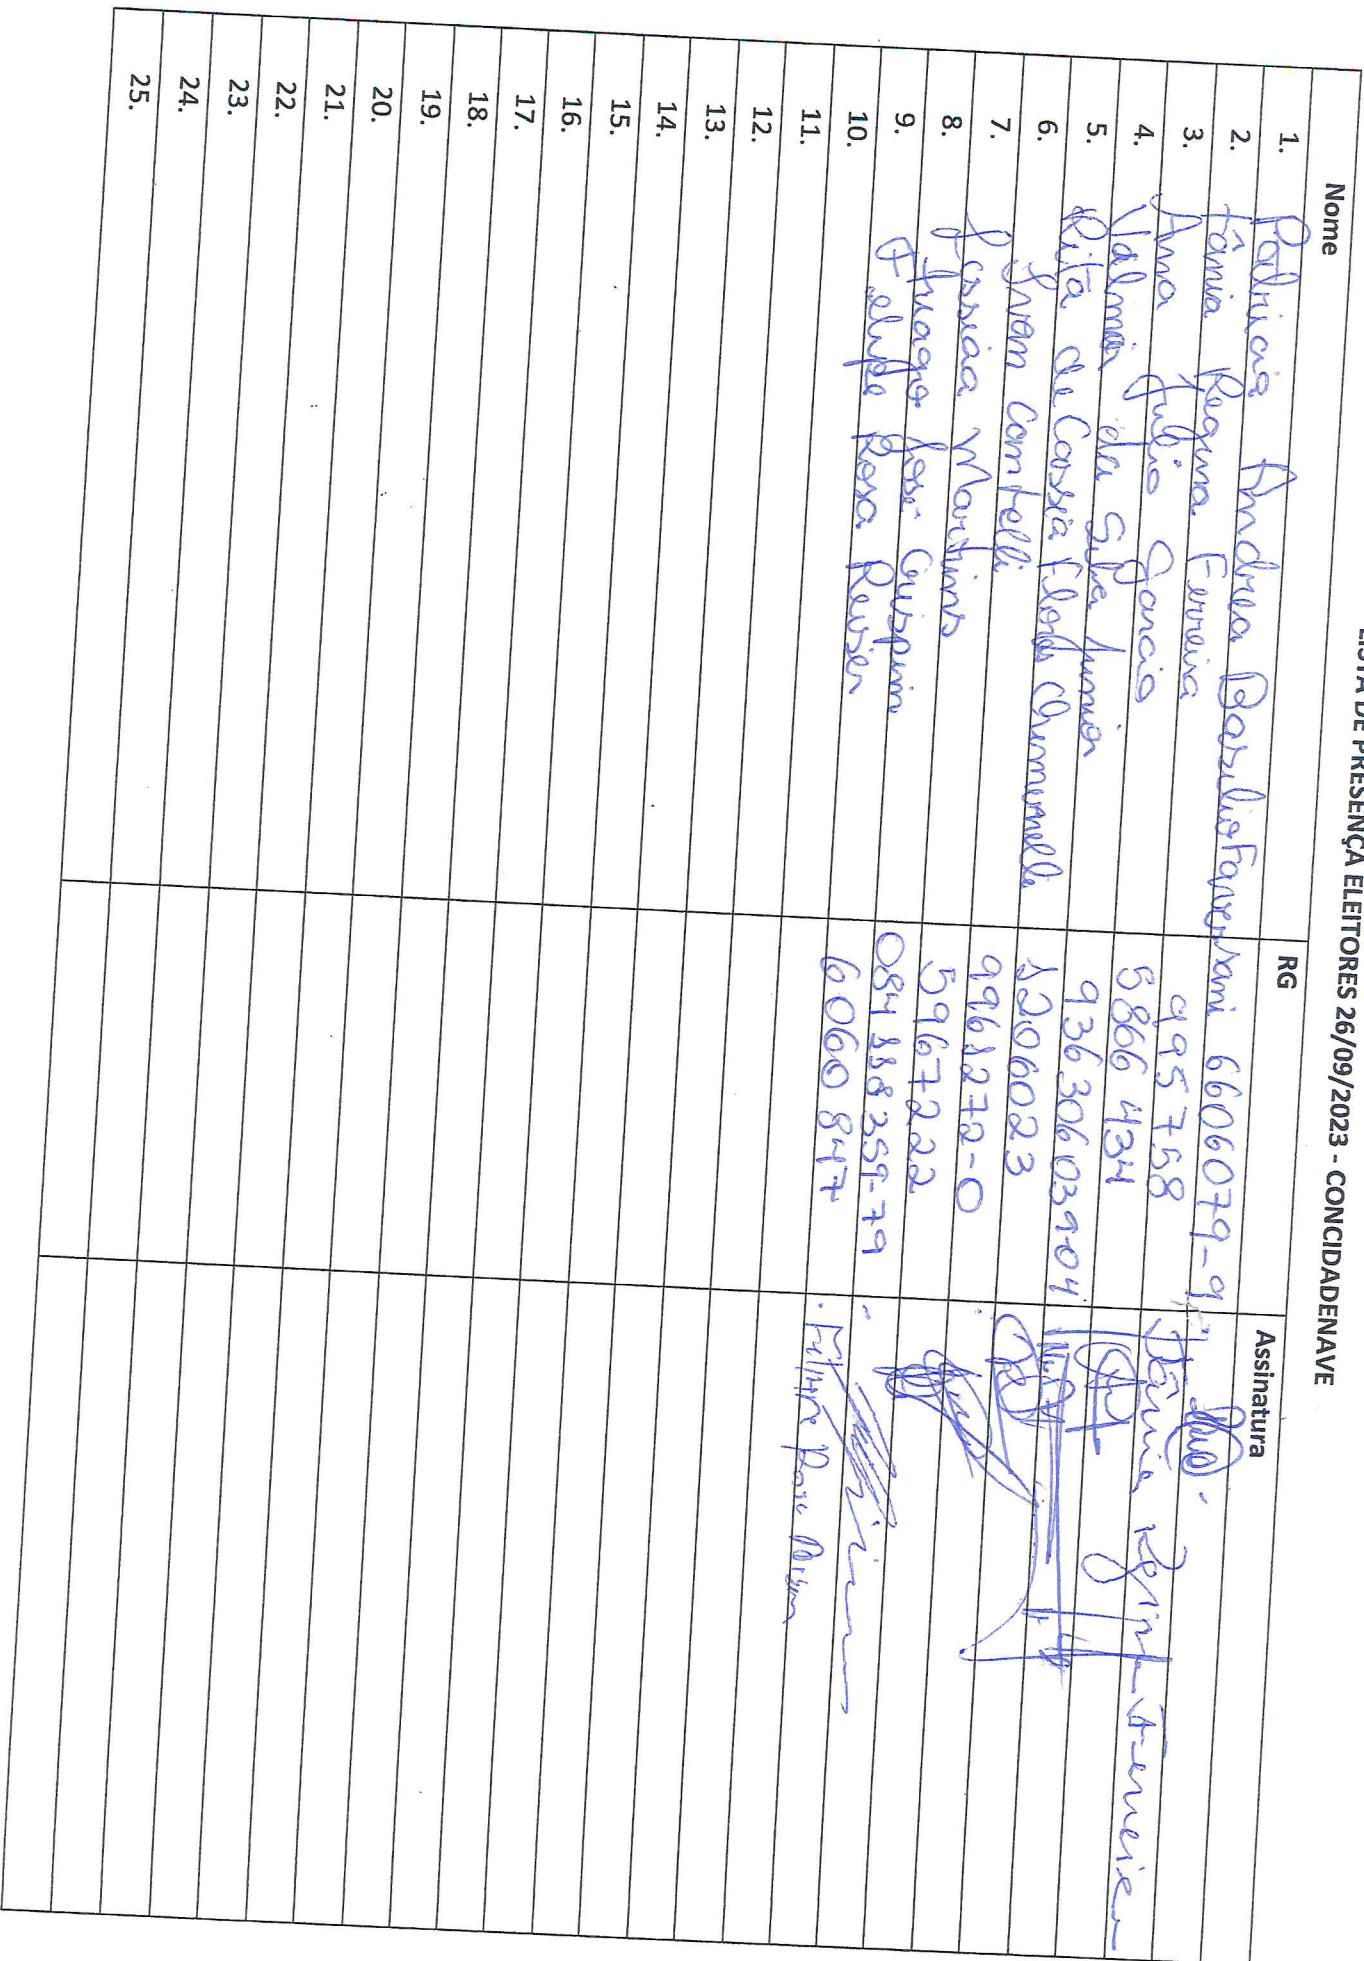 LISTA DE PRESENÇA ELEITORES 26/09/2023 - CONCIDADENAVE
Nome RG Assinatura
1. Patricia Andrea Basilio Faversani 6606079-9
2. Tânia Regina Ferreira 995758 Tânia Regina Ferreira
3. Ana Julia Garcia 5866434
4. Valmir da Silva Junior 93630603904
5. Rita de Cassia Flores 1206023
6. Ivan Cantelli 9961272-0
7. Jessica Martins 5967222
8. Thiago José Crispim 084118359-79
9. Felipe Rosa Reiser 6060847 Felipe Rosa
10.
11.
12.
13.
14.
15.
16.
17.
18.
19.
20.
21.
22.
23.
24.
25.